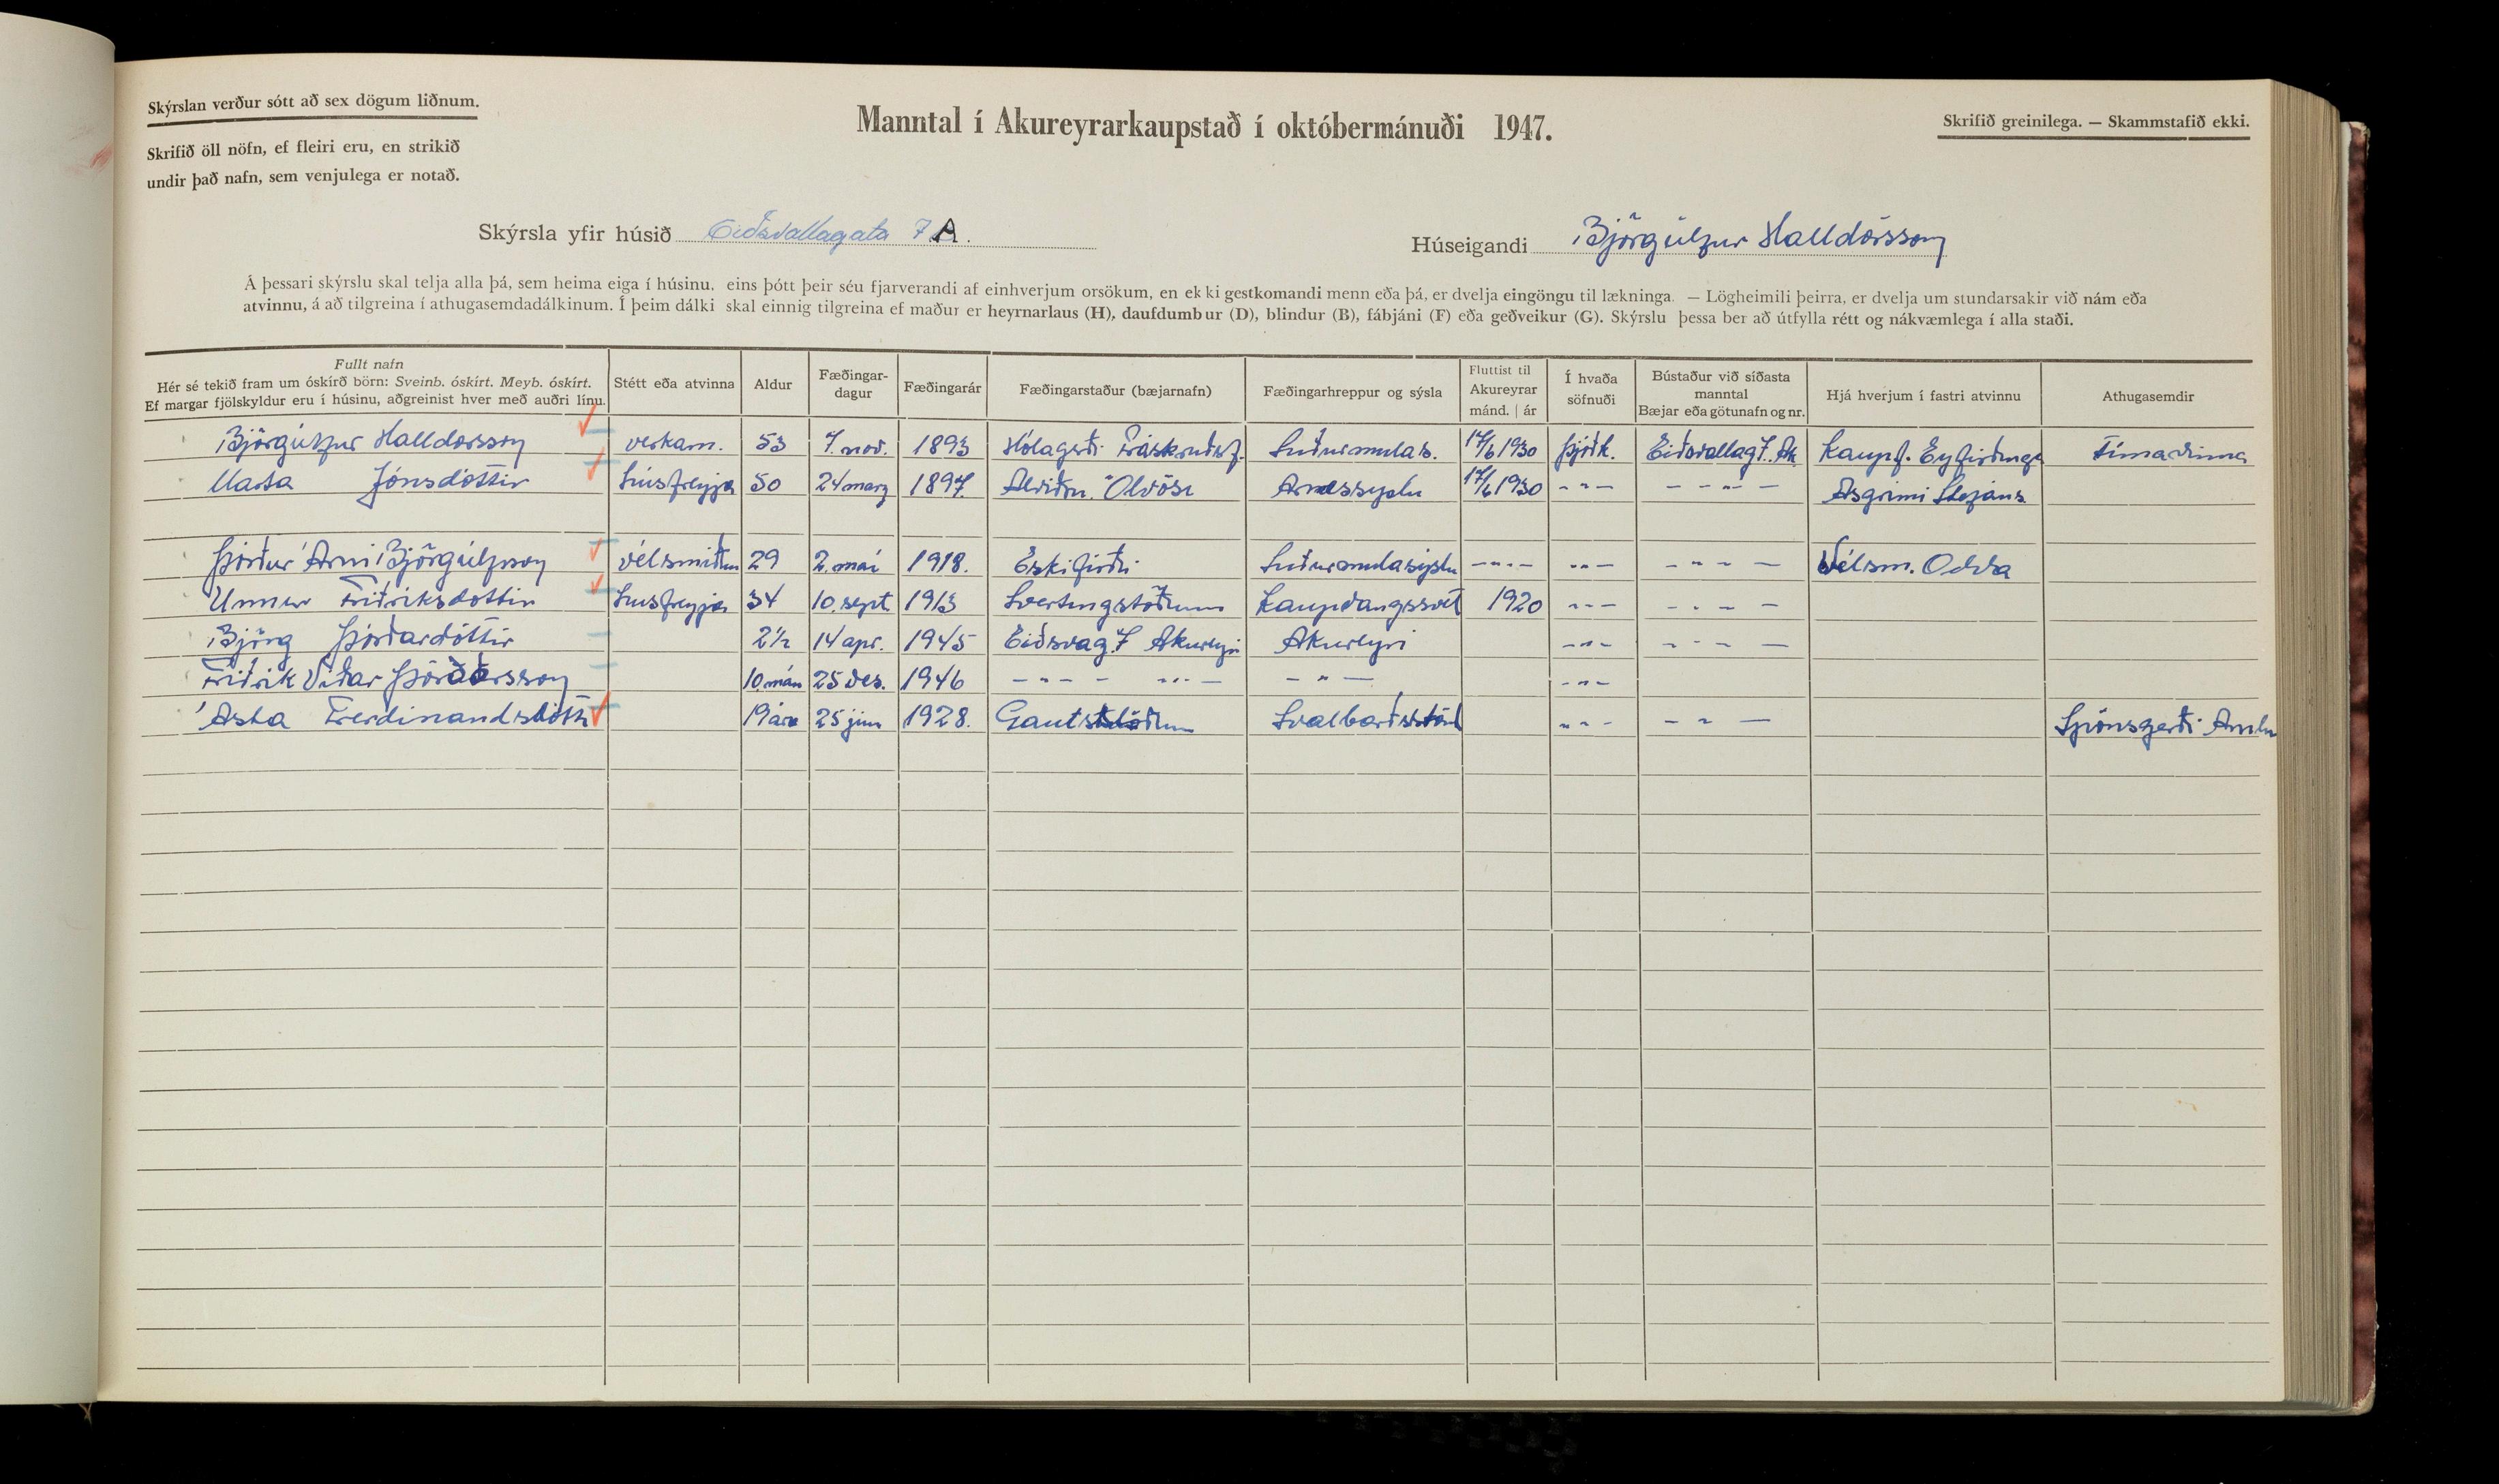 Skýrslan verður sótt að sex dögum liðnum.
Manntal í Akureyrarkaupstað í októbermánuði 1947.
Skrifið greinilega. — Skammstafið ekki.
Skrifið öll nöfn, ef fleiri eru, en strikið
undir það nafn, sem venjulega er notað.
Skýrsla yfir húsið Eiðsvallagata 7 A.
Húseigandi Björgúlfur Halldórsson
Á þessari skýrslu skal telja alla þá, sem heima eiga í húsinu, eins þótt þeir séu fjarverandi af einhverjum orsökum, en ekki gestkomandi menn eða þá, er dvelja eingöngu til lækninga. — Lögheimili þeirra, er dvelja um stundarsakir við nám eða
atvinnu, á að tilgreina í athugasemdadálkinum. Í þeim dálki skal einnig tilgreina ef maður er heyrnarlaus (H), daufdumbur (D), blindur (B), fábjáni (F) eða geðveikur (G). Skýrslu þessa ber að útfylla rétt og nákvæmlega í alla staði.
Fullt nafn
Hér sé tekið fram um óskírð börn: Sveinb. óskírt. Meyb. óskírt.
Ef margar fjölskyldur eru í húsinu, aðgreinist hver með auðri línu.
Stétt eða atvinna
Aldur
Fæðingar-
dagur
Fæðingarár
Fæðingarstaður (bæjarnafn)
Fæðingarhreppur og sýsla
Fluttist til
Akureyrar
mánd. | ár
Í hvaða
söfnuði
Bústaður við síðasta
manntal
Bæjar eða götunafn og nr.
Hjá hverjum í fastri atvinnu
Athugasemdir
Björgúlfur Halldórsson verkam. 53 7. nov. 1893 Hólagerði Fáskrúðsf. Suðurmulas. 17/6 1930 þjóðk. Eiðsvallag 7. Ak. Kaupf. Eyfirðinga Tímavinna
Marta Jónsdóttir húsfreyja 50 24 marz 1897 Alviðru. Ölvösi Arnessyslu 17/6 1930 - " - - " - Asgrimi Stefáns.
Þórður Arni Björgúlfsson vélsmiður 29 2. mai 1918. Eskifirði Suðurmulasýslu - " - - " - - " - Vélsm. Odda
Unnur Friðriksdóttir húsfreyja 34 10. sept. 1913 Svertingstöðum Kaupangssveit 1920 - " - - " -
Björg Þórðardóttir 2½ 14 apr. 1945 Eiðsvag. 7 Akureyri Akureyri - " - - " -
Friðrik Viðar Þórðarsson 10. mán 25 des. 1946 - " - - " - - " - - " -
Ásta Ferdinandsdóttir 19 ára 25 júni 1928. Gautsstöðum Svalbarðsströnd - " - - " - Spónsgerði